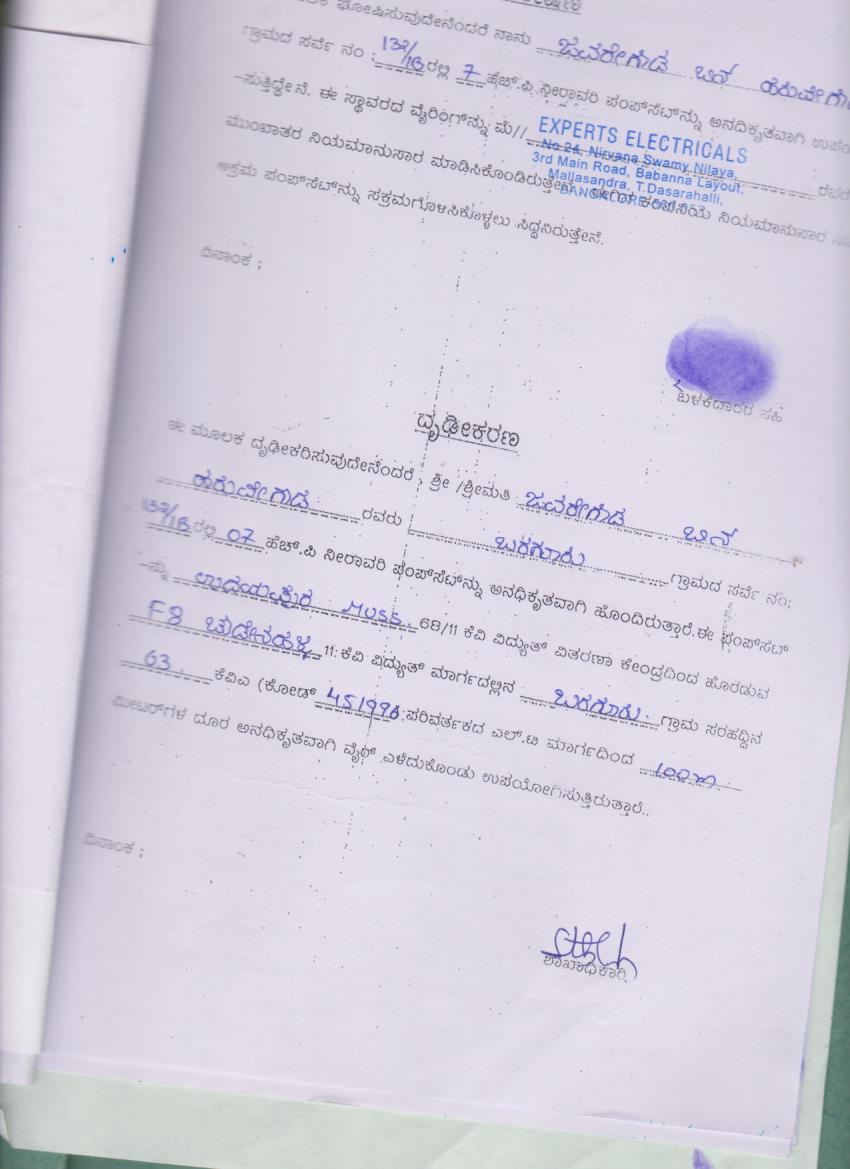 ಘೋಷಿಸುವುದೇನೆಂದರೆ ನಾನು ಜವರೇಗೌಡ ಬಿನ್
ಗ್ರಾಮದ ಸರ್ವೆ ನಂ : ರಲ್ಲಿ 7 ಹೆಚ್.ಪಿ ನೀರಾವರಿ ಪಂಪ್‌ಸೆಟ್‌ನ್ನು ಅನದಿಕೃತವಾಗಿ
-ಸುತ್ತಿದ್ದೇನೆ. ಈ ಸ್ಥಾವರದ ವೈರಿಂಗ್‌ನ್ನು ಮೆ// EXPERTS ELECTRICALS
No.24, Nirvana Swamy Nilaya,
3rd Main Road, Babanna Layout,
Mallasandra, T.Dasarahalli,
ಮುಂಖಾತರ ನಿಯಮಾನುಸಾರ ಮಾಡಿಸಿಕೊಂಡಿರುತ್ತೇನೆ ಕಂಪನಿಯ ನಿಯಮಾನುಸಾರ
ಅಕ್ರಮ ಪಂಪ್‌ಸೆಟ್‌ನ್ನು ಸಕ್ರಮಗೊಳಸಿಕೊಳ್ಳಲು ಸಿದ್ದನಿರುತ್ತೇನೆ.
ದಿನಾಂಕ :
ಬಳಕೆದಾರರ ಸಹಿ
ದೃಢೀಕರಣ
ಈ ಮೂಲಕ ದೃಢೀಕರಿಸುವುದೇನೆಂದರೆ , ಶ್ರೀ /ಶ್ರೀಮತಿ ಜವರೇಗೌಡ ಬಿನ್
ರವರು ಬರಗೂರು ಗ್ರಾಮದ ಸರ್ವೆ ನಂ;
ರಲ್ಲಿ 07 ಹೆಚ್.ಪಿ ನೀರಾವರಿ ಪಂಪ್‌ಸೆಟ್‌ನ್ನು ಅನಧಿಕೃತವಾಗಿ ಹೊಂದಿರುತ್ತಾರೆ.ಈ ಪಂಪ್‌ಸೆಟ್
-ನ್ನು ಉದಯಪುರ MUSS. 68/11 ಕೆವಿ ವಿದ್ಯುತ್ ವಿತರಣಾ ಕೇಂದ್ರದಿಂದ ಹೊರಡುವ
F8 11 ಕೆವಿ ವಿದ್ಯುತ್ ಮಾರ್ಗದಲ್ಲಿನ ಬರಗೂರು. ಗ್ರಾಮ ಸರಹದ್ದಿನ
63. ಕೆವಿಎ (ಕೋಡ್ 451996 ಪರಿವರ್ತಕದ ಎಲ್.ಟಿ ಮಾರ್ಗದಿಂದ 100m
ಮೀಟರ್‌ಗಳ ದೂರ ಅನಧಿಕೃತವಾಗಿ ವೈರ್ ಎಳೆದುಕೊಂಡು ಉಪಯೋಗಿಸುತ್ತಿರುತ್ತಾರೆ.
ದಿನಾಂಕ :
ಶಾಖಾಧಿಕಾರಿ.